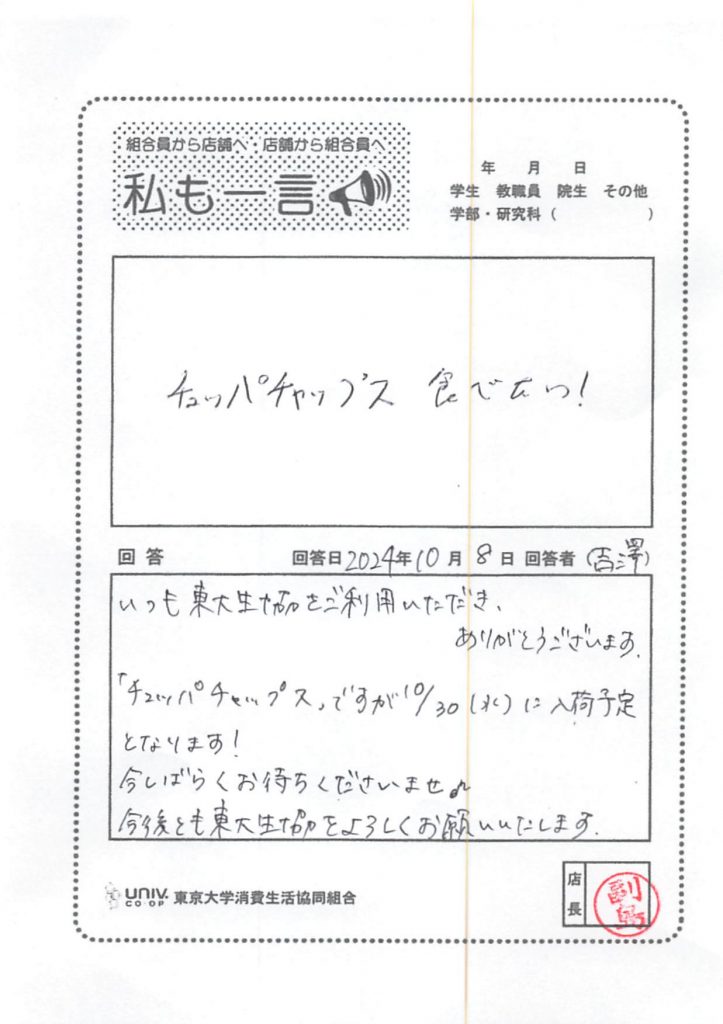 組合員から店舗へ・店舗から組合員へ
私も一言
年 月 日
学生 教職員 院生 その他
学部・研究科( )
チュッパチャップス 食べたい!
回答 回答日2024年10月8日 回答者(吉澤)
いつも東大生協をご利用いただき、
ありがとうございます。
「チュッパチャップス」ですが10/30(水)に入荷予定
となります!
今しばらくお待ちくださいませ♪
今後とも東大生協をよろしくお願いいたします。
UNIV. CO-OP 東京大学消費生活協同組合
店長
副島